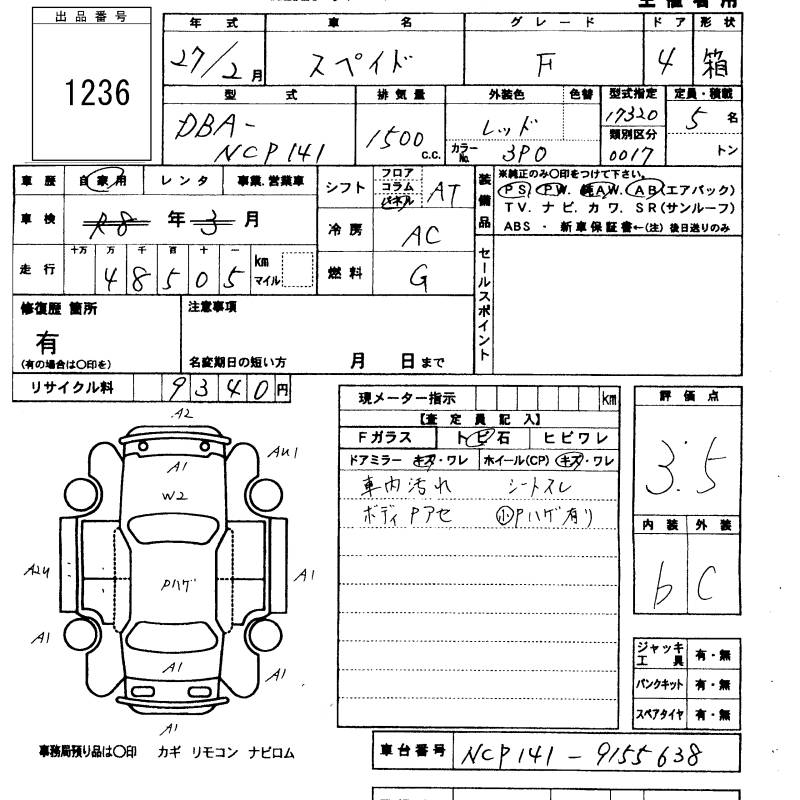 出品番号
1236
年式 車名 グレード ドア 形状
27/2月 スペイド F 4 箱
型式 排気量 外装色 色替 型式指定 定員・積載
DBA-
NCP141
1500 c.c.
レッド
カラーNo. 3P0
17320
類別区分
0017
5 名
トン
車歴 自家用 レンタ 事業.営業車
シフト フロア コラム パネル AT
装備品
※純正のみ〇印をつけて下さい。
PS. PW. 純AW. AB(エアバック)
TV. ナビ. カワ. SR(サンルーフ)
ABS ・ 新車保証書←(注) 後日送りのみ
車検 R8年3月
冷房 AC
走行 十万 万 千 百 十 一
48505 km マイル
燃料 G
セールスポイント
修復歴 箇所
有
(有の場合は〇印を)
注意事項
名変期日の短い方 月 日まで
リサイクル料 9340円
現メーター指示 km
【査定員記入】
Fガラス トビ石 ヒビワレ
ドアミラー キズ・ワレ ホイール(CP) キズ・ワレ
車内汚れ シートスレ
ボディPアセ 小Pハゲ有り
評価点
3.5
内装 外装
b C
A2
A1
AU1
W2
A2U
Pハゲ
A1
A1
A1
A1
A1
ジャッキ工具 有・無
パンクキット 有・無
スペアタイヤ 有・無
事務局預り品は〇印 カギ リモコン ナビロム
車台番号 NCP141-9155638